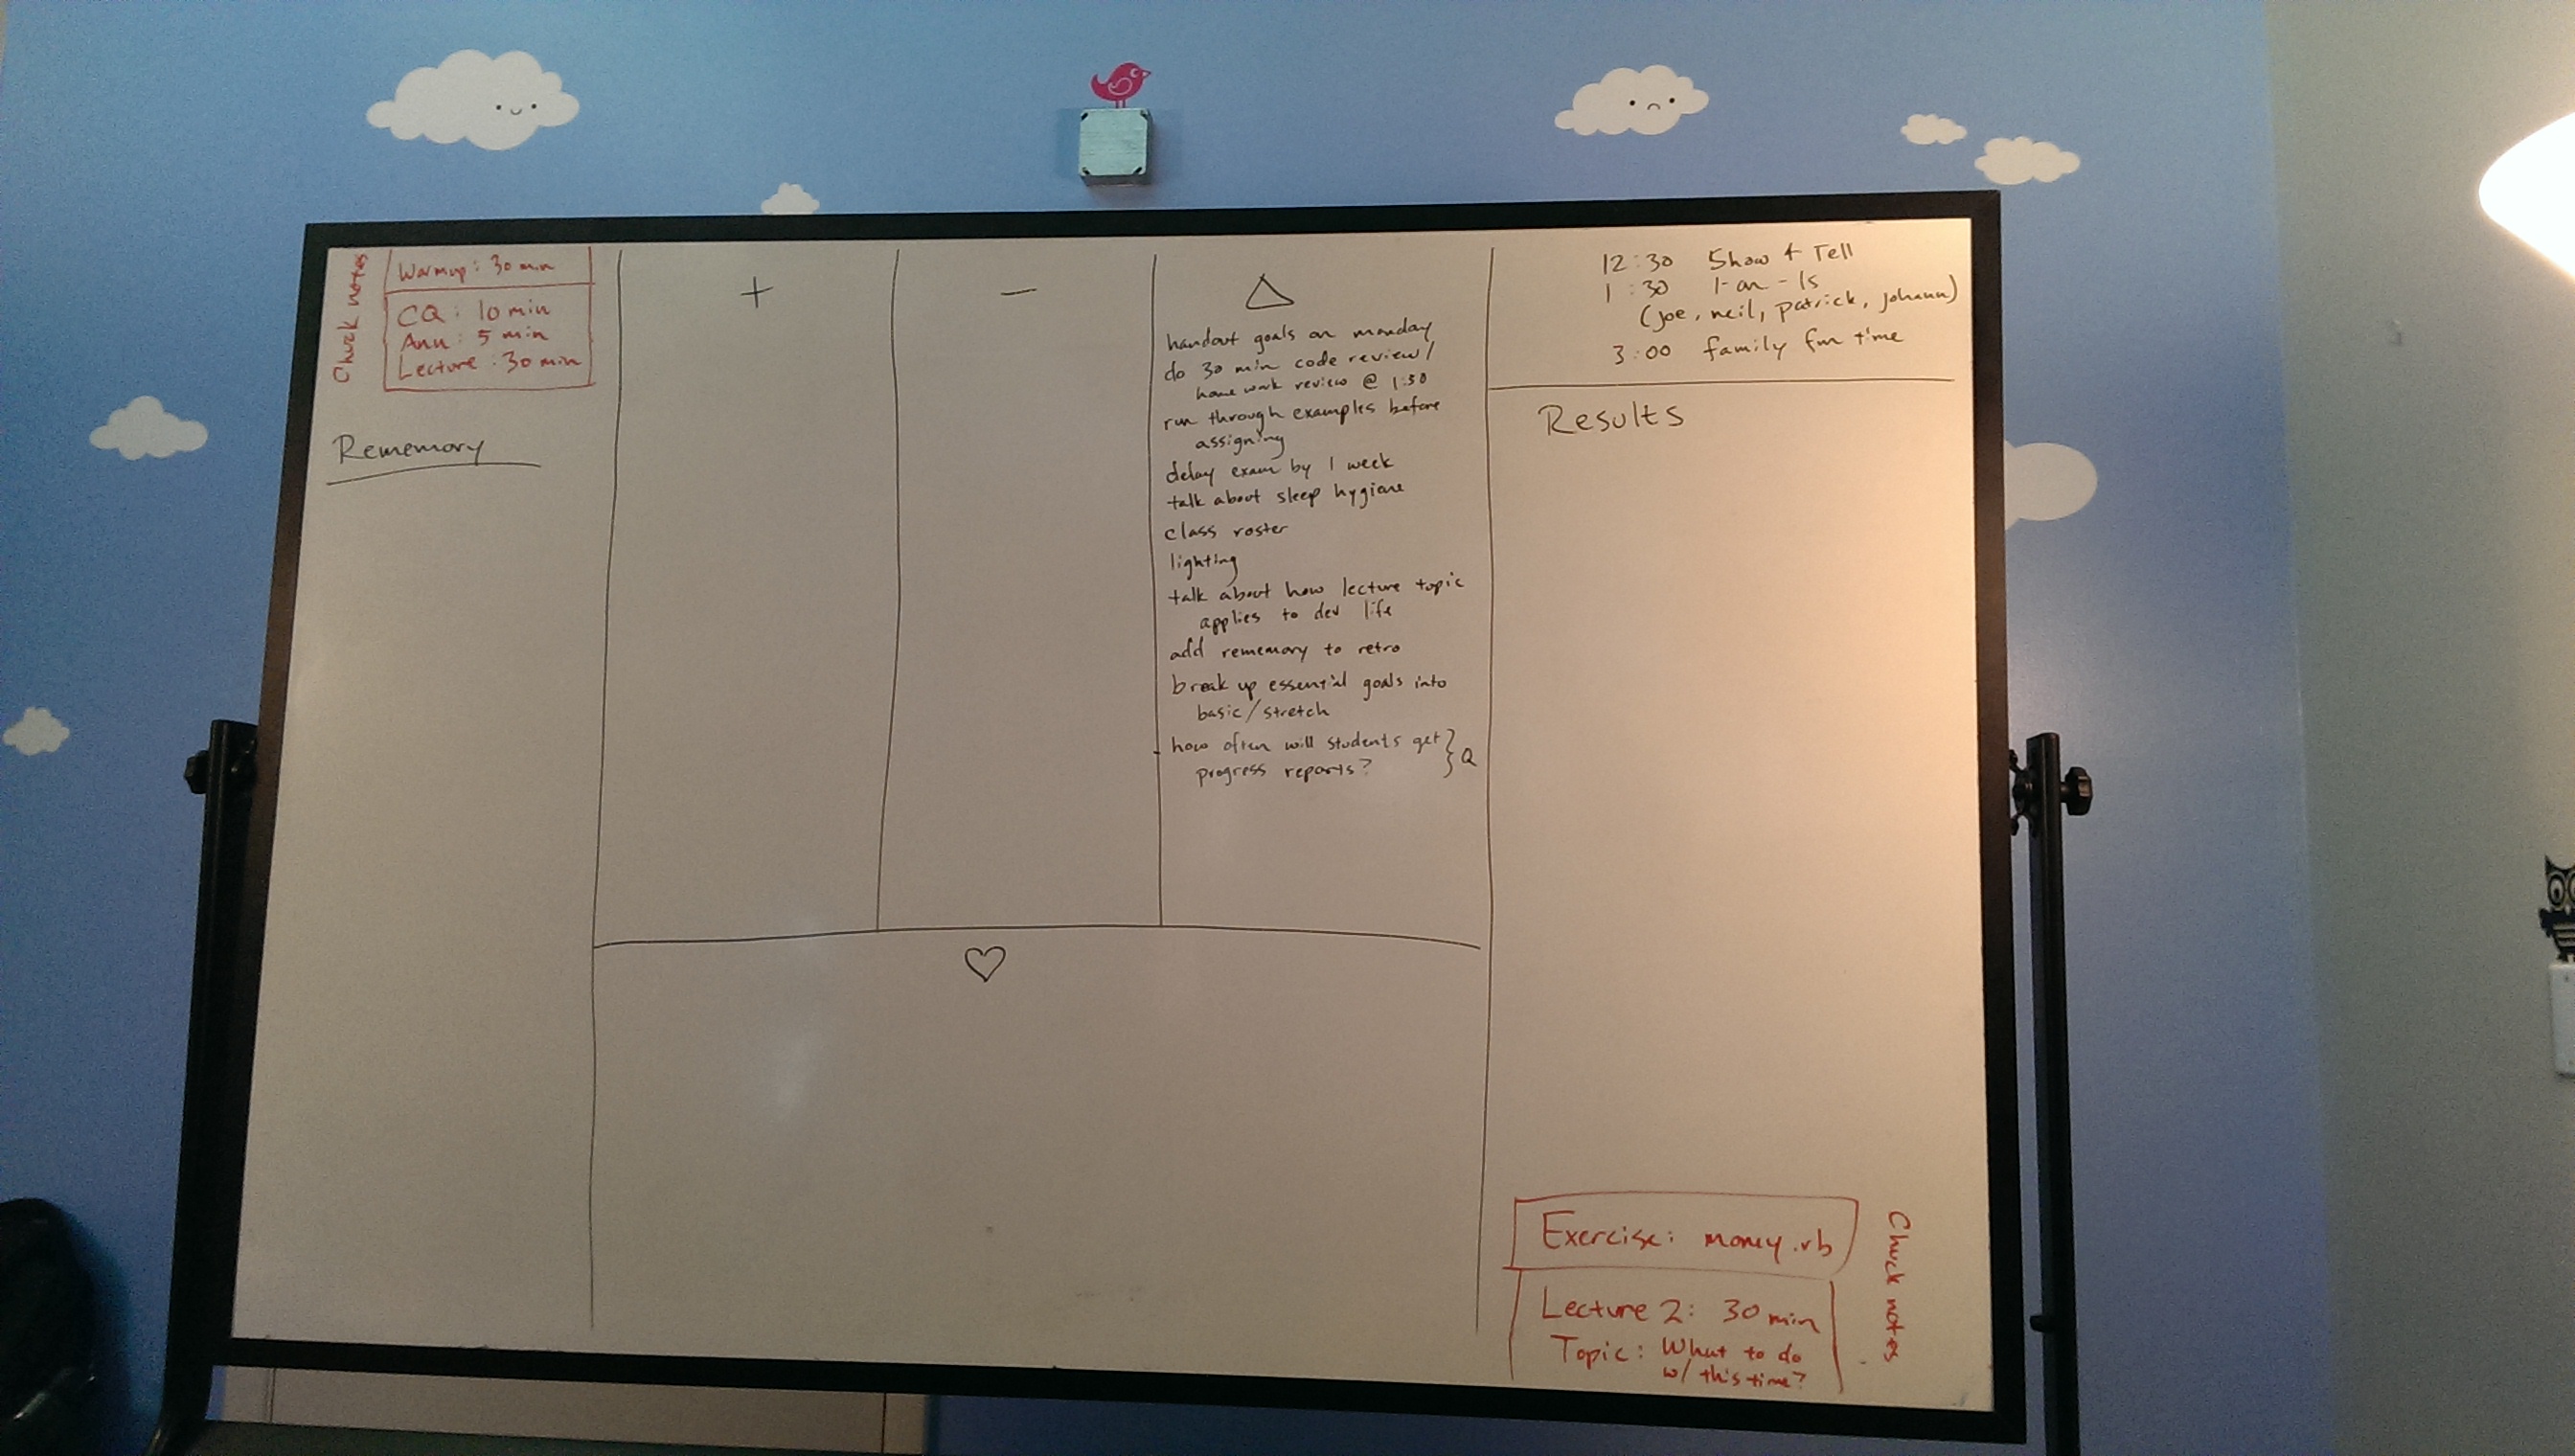 Chuck notes
Warmup: 30 min
CQ: 10 min
Ann: 5 min
Lecture: 30 min
Rememory
+
-
△
handout goals on monday
do 30 min code review/
home work review @ 1:30
run through examples before
assigning
delay exam by 1 week
talk about sleep hygiene
class roster
lighting
talk about how lecture topic
applies to dev life
add rememory to retro
break up essential goals into
basic/stretch
how often will students get
progress reports? } Q
♡
12:30 Show & Tell
1:30 1-on-1s
(joe, neil, patrick, johann)
3:00 family fun time
Results
Exercise: money.rb
Lecture 2: 30 min
Topic: What to do
w/ this time?
Chuck notes